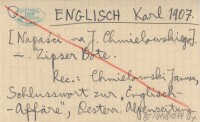 ENGLISCH Karl 1907.
[Napaści na J. Chmielowskiego].
—. Zipser Bote.
Rec.: Chmielowski Janusz,
Schlusswort zur „Englisch-
-Affäre", Oesterr. Alpenzeitung